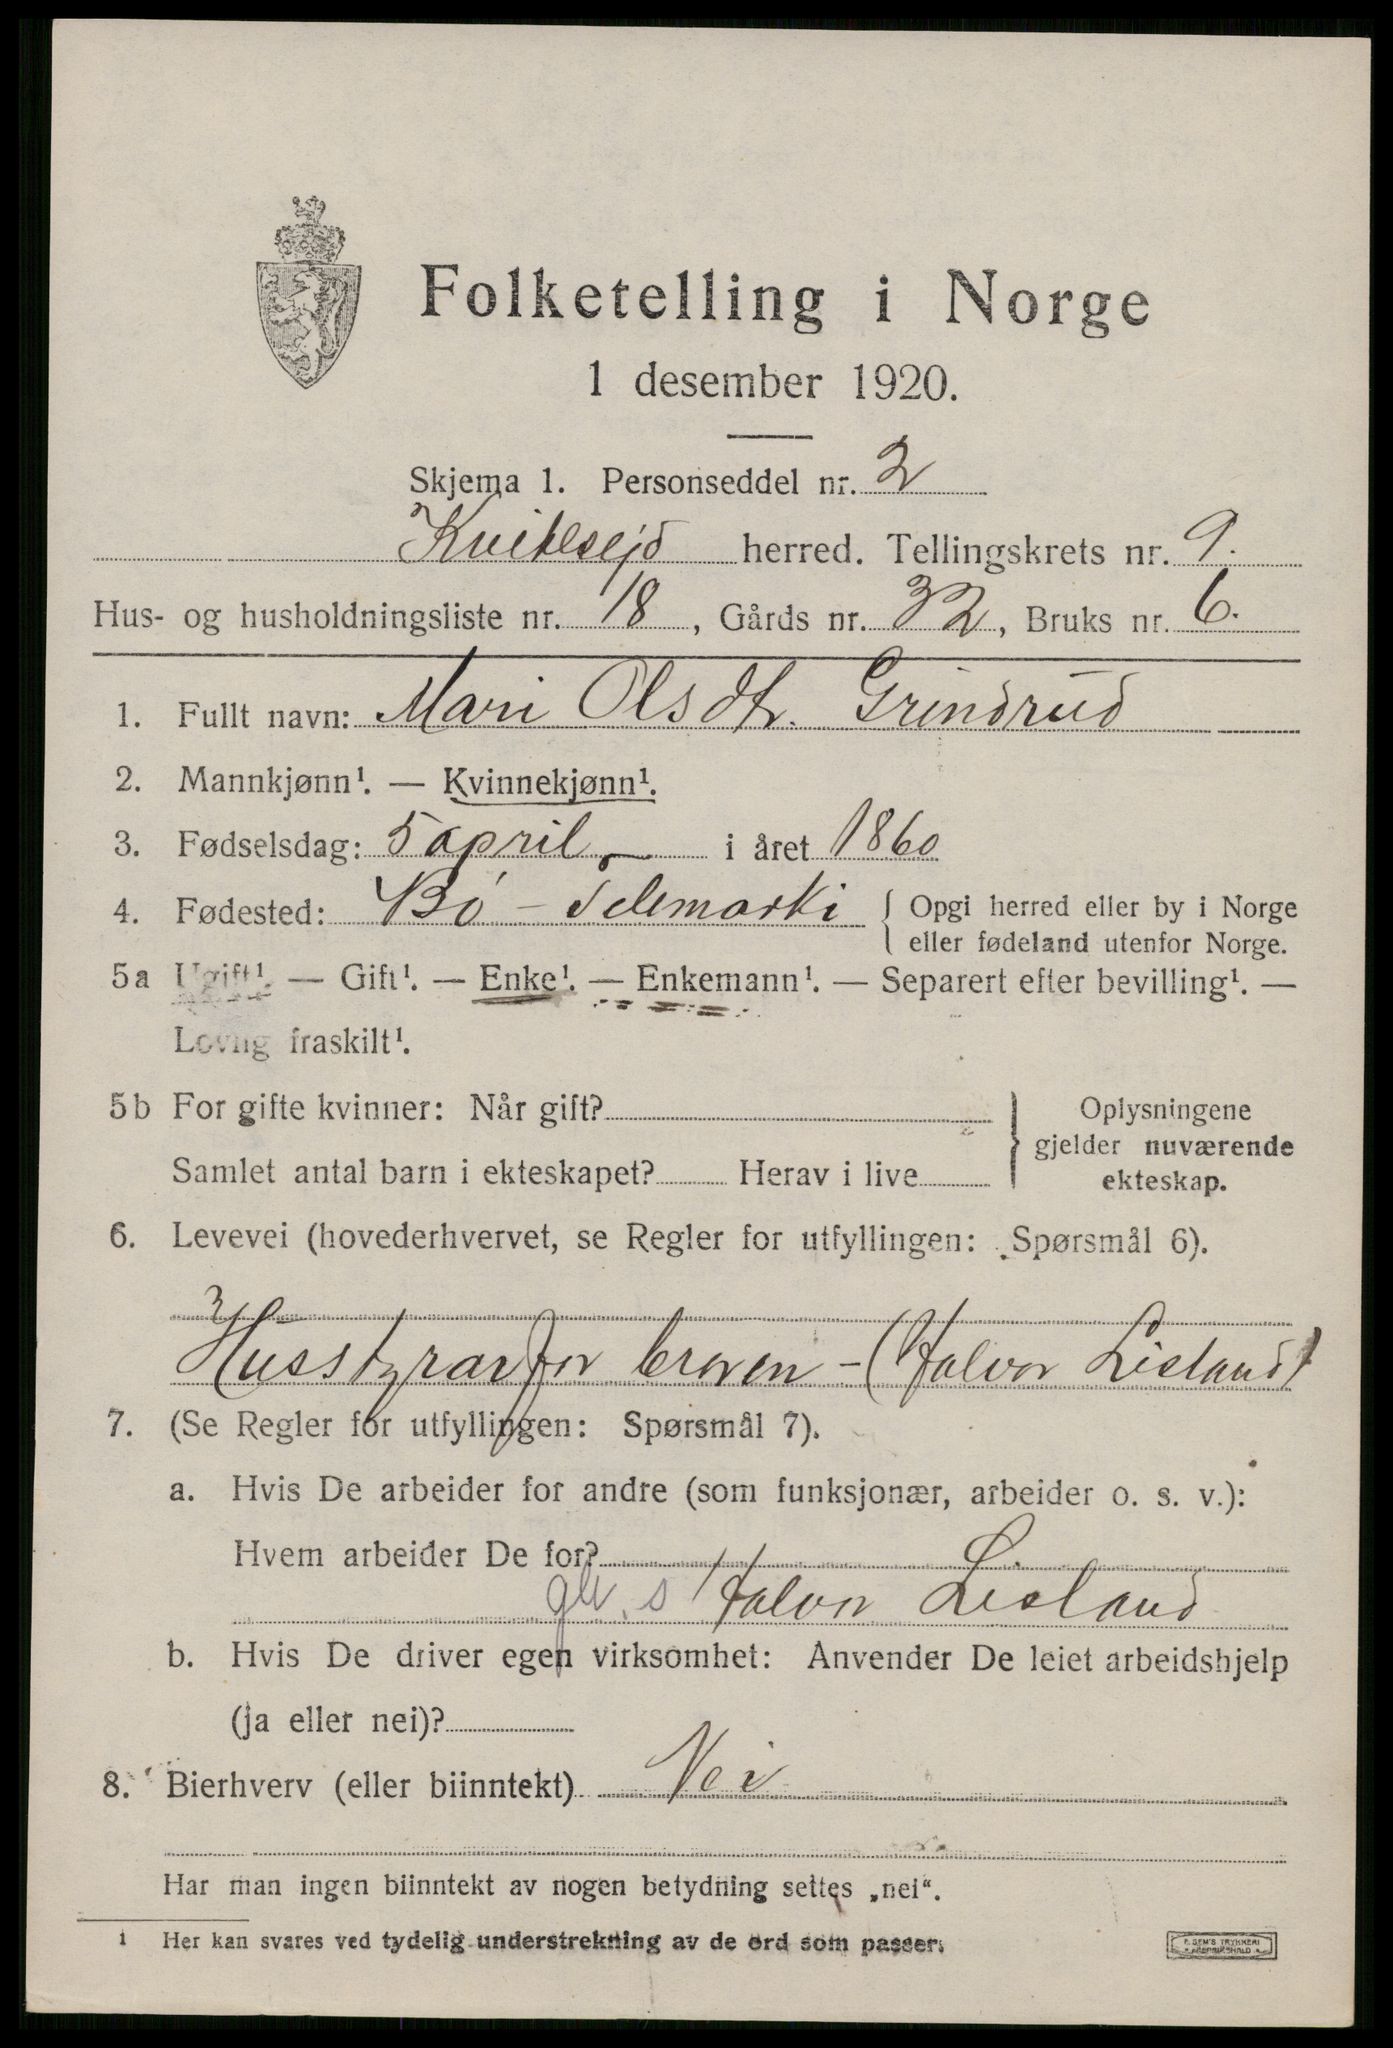 Folketelling i Norge
1 desember 1920.
Skjema 1. Personseddel nr. 2
Kvitesejd herred. Tellingskrets nr. 9.
Hus- og husholdningsliste nr. 18, Gårds nr. 32, Bruks nr. 6.
1. Fullt navn: Mari Olsdtr. Grindrud
2. Mannkjønn¹. — Kvinnekjønn¹.
3. Fødselsdag: 5 april i året 1860
4. Fødested: Bø - Telemarki { Opgi herred eller by i Norge
eller fødeland utenfor Norge.
5a Ugift¹. — Gift¹. — Enke¹. — Enkemann¹. — Separert efter bevilling¹. —
Lovlig fraskilt¹.
5b For gifte kvinner: Når gift? } Oplysningene
gjelder nuværende
Samlet antal barn i ekteskapet? Herav i live
ekteskap.
6. Levevei (hovederhvervet, se Regler for utfyllingen: Spørsmål 6).
Husstyrar for broren - (Halvor Lisland)
7. (Se Regler for utfyllingen: Spørsmål 7).
a. Hvis De arbeider for andre (som funksjonær, arbeider o. s. v.):
Hvem arbeider De for?
Halvor Lisland
b. Hvis De driver egen virksomhet: Anvender De leiet arbeidshjelp
(ja eller nei)?
8. Bierhverv (eller biinntekt) Nei
Har man ingen biinntekt av nogen betydning settes „nei“.
1 Her kan svares ved tydelig understrekning av de ord som passer.
F. SEM'S TRYKKERI
FREDRIKSHALD